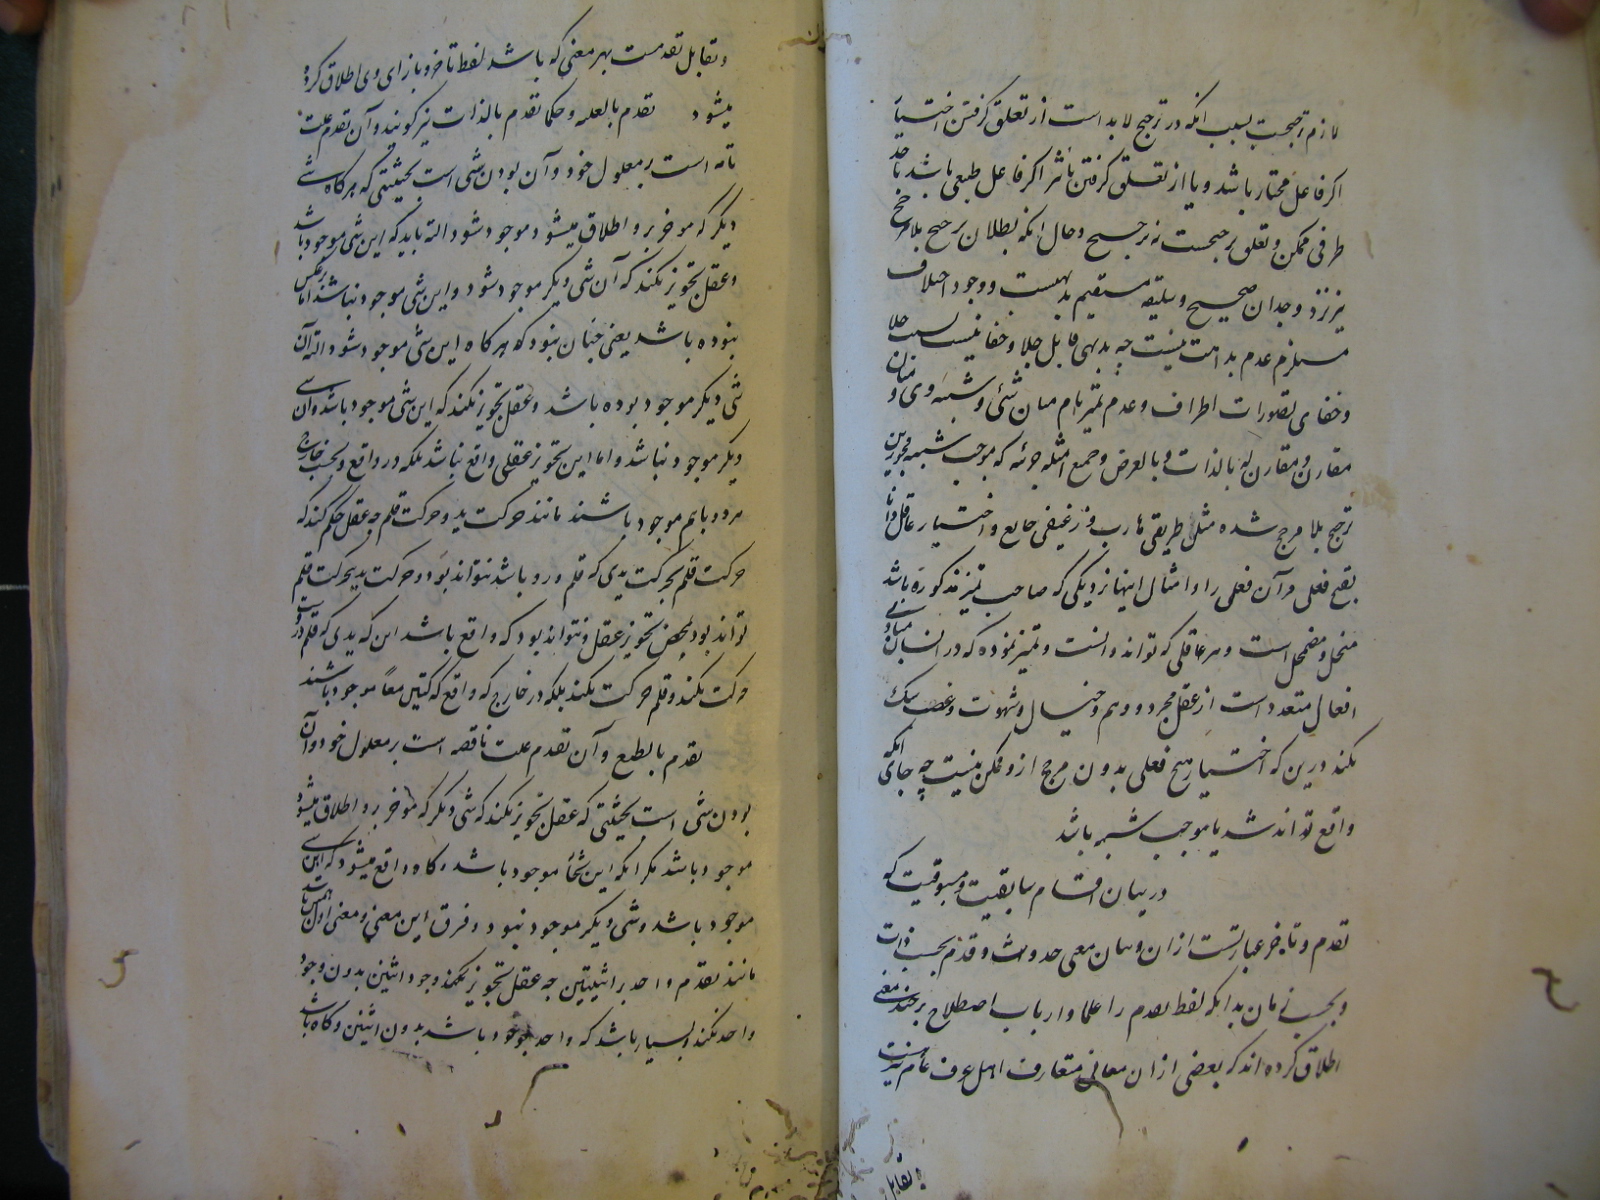 لازم ترجیحست بسبب انکه در ترجیح لابد است از تعلق کرفتن اختیار
اکر فاعل مختار باشد و یا از تعلق کرفتن تاثیر اکر فاعل طبعی باشد باحد
طرفی ممکن و تعلق ترجیحست نه ترجیح و حال انکه بطلان ترجیح بلا مرجح
نیز نزد وجدان صحیح و سلیقه مستقیم بدیهیست و وجود اختلاف
مستلزم عدم بداهت نیست چه بدیهی قابل جلا و خفا نیست جلا
و خفای تصورات اطراف و عدم تمیز تام میان شئی و شبه وی و میان
مقارن و مقارن له بالذات و بالعرض و جمیع امثله جزئیه که موجب شبهه مجوزین
ترجیح بلا مرجح شده مثل طریقی هارب و رغیفی جایع و اختیار عاقل دانا
بقبح فعلی مر آن فعلی را و امثال اینها نزدیکی که صاحب تمیز مذکوره باشد
منحل و مضمحل است و هر عاقلی که تواند دانست و تمیز نموده که در انسان مبادی
افعال متعدد است از عقل مجرد و وهم و خیال و شهوت و غضب شک
نکند درین که اختیار هیچ فعلی بدون مرجح از و ممکن نیست چه جای انکه
واقع تواند شد یا موجب شبهه باشد
در بیان اقسام سابقیت و مسبوقیت که
تقدم و تاخر عبارتست از ان و بیان معنی حدوث و قدم بحسب ذات
و بحسب زمان بدانکه لفظ تقدم را علما و ارباب اصطلاح بر چند معنی
اطلاق کرده اند که بعضی از ان معانی متعارف اهل عرف عام نیست
و تقابل
و تقابل تقدمست بهر معنی که باشد لفظ تاخر و بازای وی اطلاق کرده
میشود تقدم بالعلیه و حکما تقدم بالذات نیز کویند و آن تقدم علت
تامه است بر معلول خود و آن بودن شی است بحیثیتی که هرکاه شی
دیکر که موخر بر و اطلاق میشود موجود شود البته باید که این شی موجود باشد
و عقل تجویز نکند که آن شی دیکر موجود شود و این شی موجود نباشد اما بر عکس
نبوده باشد یعنی چنان نبود که هرکاه این شی موجود شود البته آن
شی دیکر موجود بوده باشد و عقل تجویز نکند که این شی موجود باشد و آن شی
دیکر موجود نباشد و اما این تجویز عقلی واقع نباشد بلکه در واقع و بحسب خارج
هر دو باهم موجود باشند مانند حرکت ید و حرکت قلم چه عقل حکم کند که
حرکت قلم بحرکت یدی که قلم درو باشد نتواند بود و حرکت ید بحرکت قلم
تواند بود بمحض تجویز عقل و نتواند بود که واقع باشد این که یدی که قلم دروست
حرکت بکند و قلم حرکت نکند بلکه در خارج که واقع که کتین معاً موجود باشند
تقدم بالطبع و آن تقدم علت ناقصه است بر معلول خود و آن
بودن شی است بحیثیتی که عقل تجویز نکند که شی دیکر که موخر برو اطلاق میشود
موجود باشد مکر انکه این شی موجود باشد و کاه واقع میشود که این شی
موجود باشد و شی دیکر موجود نبود و فرق این معنی و معنی اول همین باشد
مانند تقدم واحد بر اثنیتین چه عقل تجویز نکند وجود اثنین بدون وجود
واحد نکند بسیار باشد که واحد موجود باشد بدون اثنین و کاه باشد